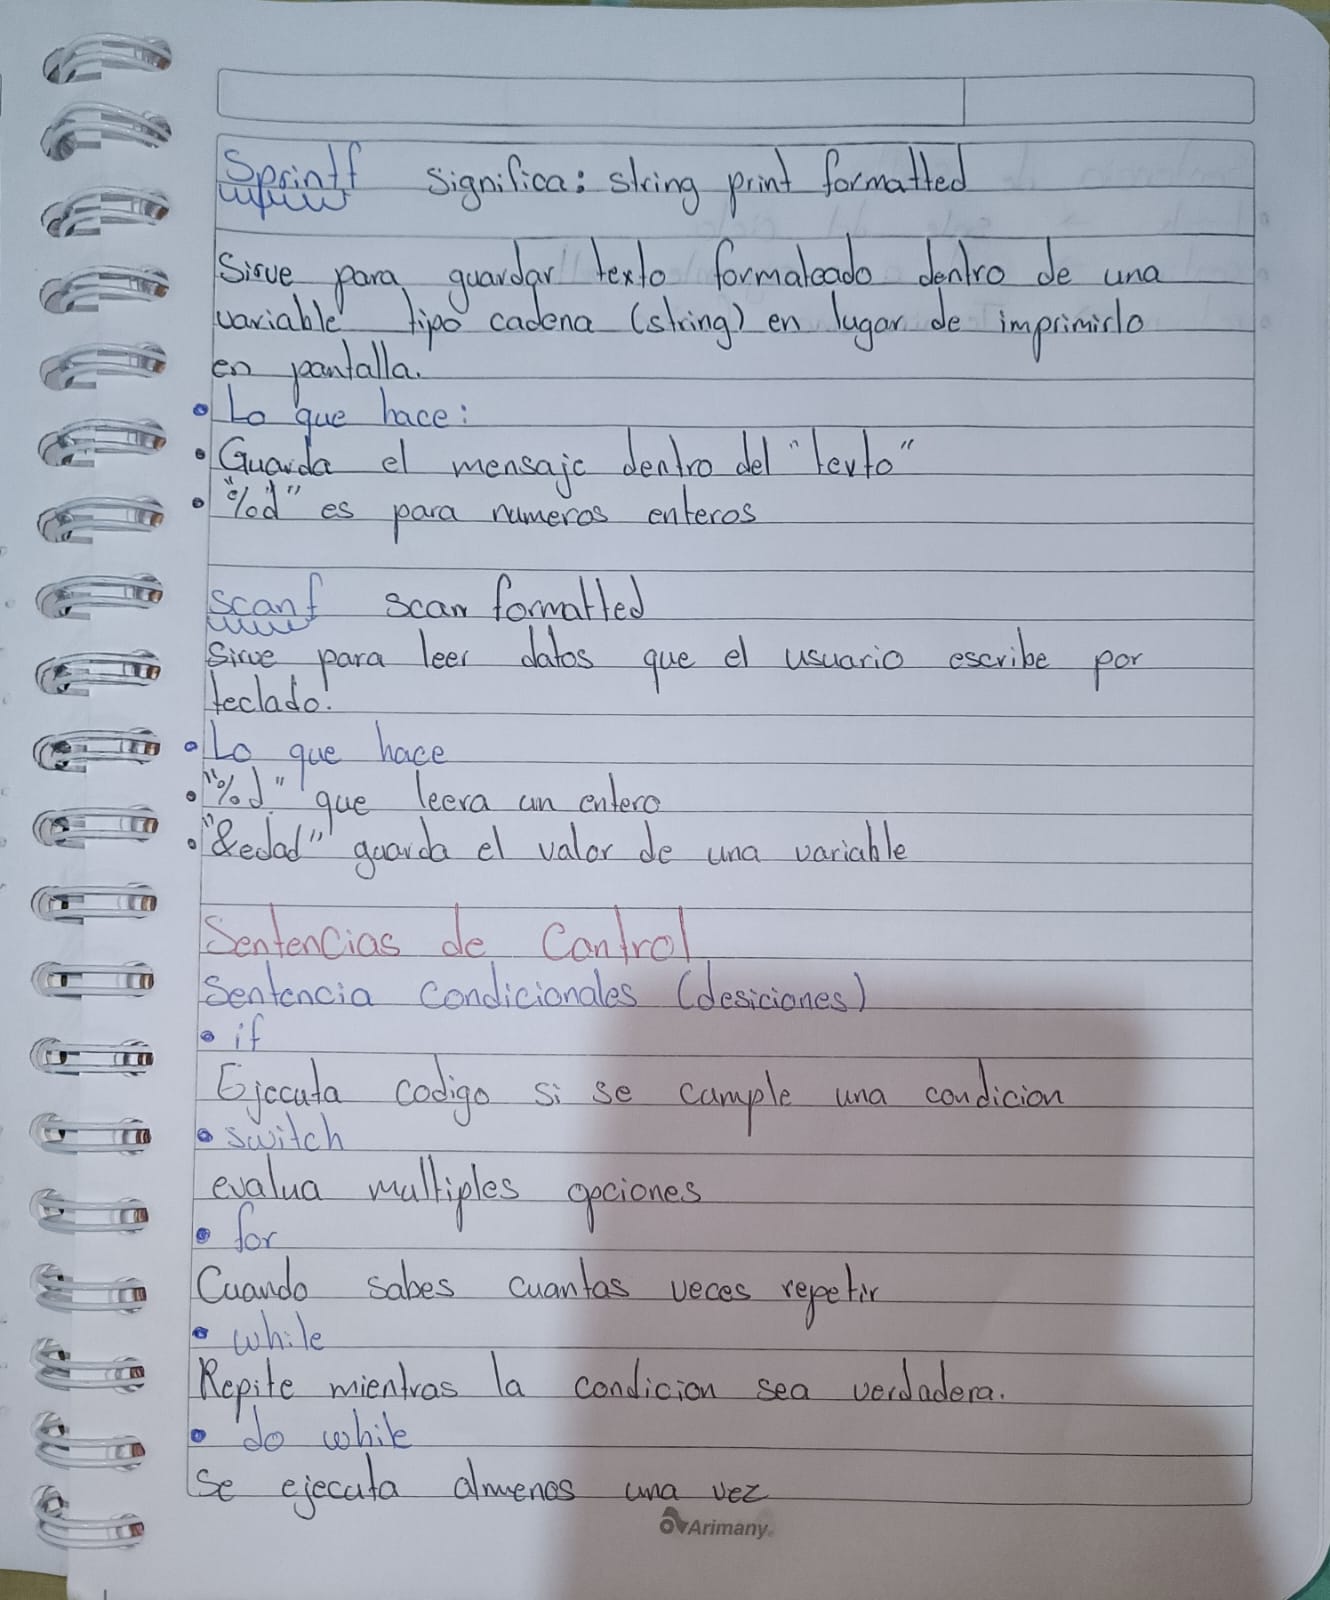 Sprintf significa: string print formatted
Sirve para guardar texto formateado dentro de una
variable tipo cadena (string) en lugar de imprimirlo
en pantalla.
• Lo que hace:
• Guarda el mensaje dentro del "texto"
• "%d" es para numeros enteros
scanf scan formatted
Sirve para leer datos que el usuario escribe por
teclado.
• Lo que hace
• "%d" que leera un entero
• "&edad" guarda el valor de una variable
Sentencias de Control
Sentencia condicionales (desiciones)
• if
Ejecuta codigo si se cumple una condicion
• switch
evalua multiples opciones
• for
Cuando sabes cuantas veces repetir
• while
Repite mientras la condicion sea verdadera.
• do while
Se ejecuta almenos una vez
Arimany